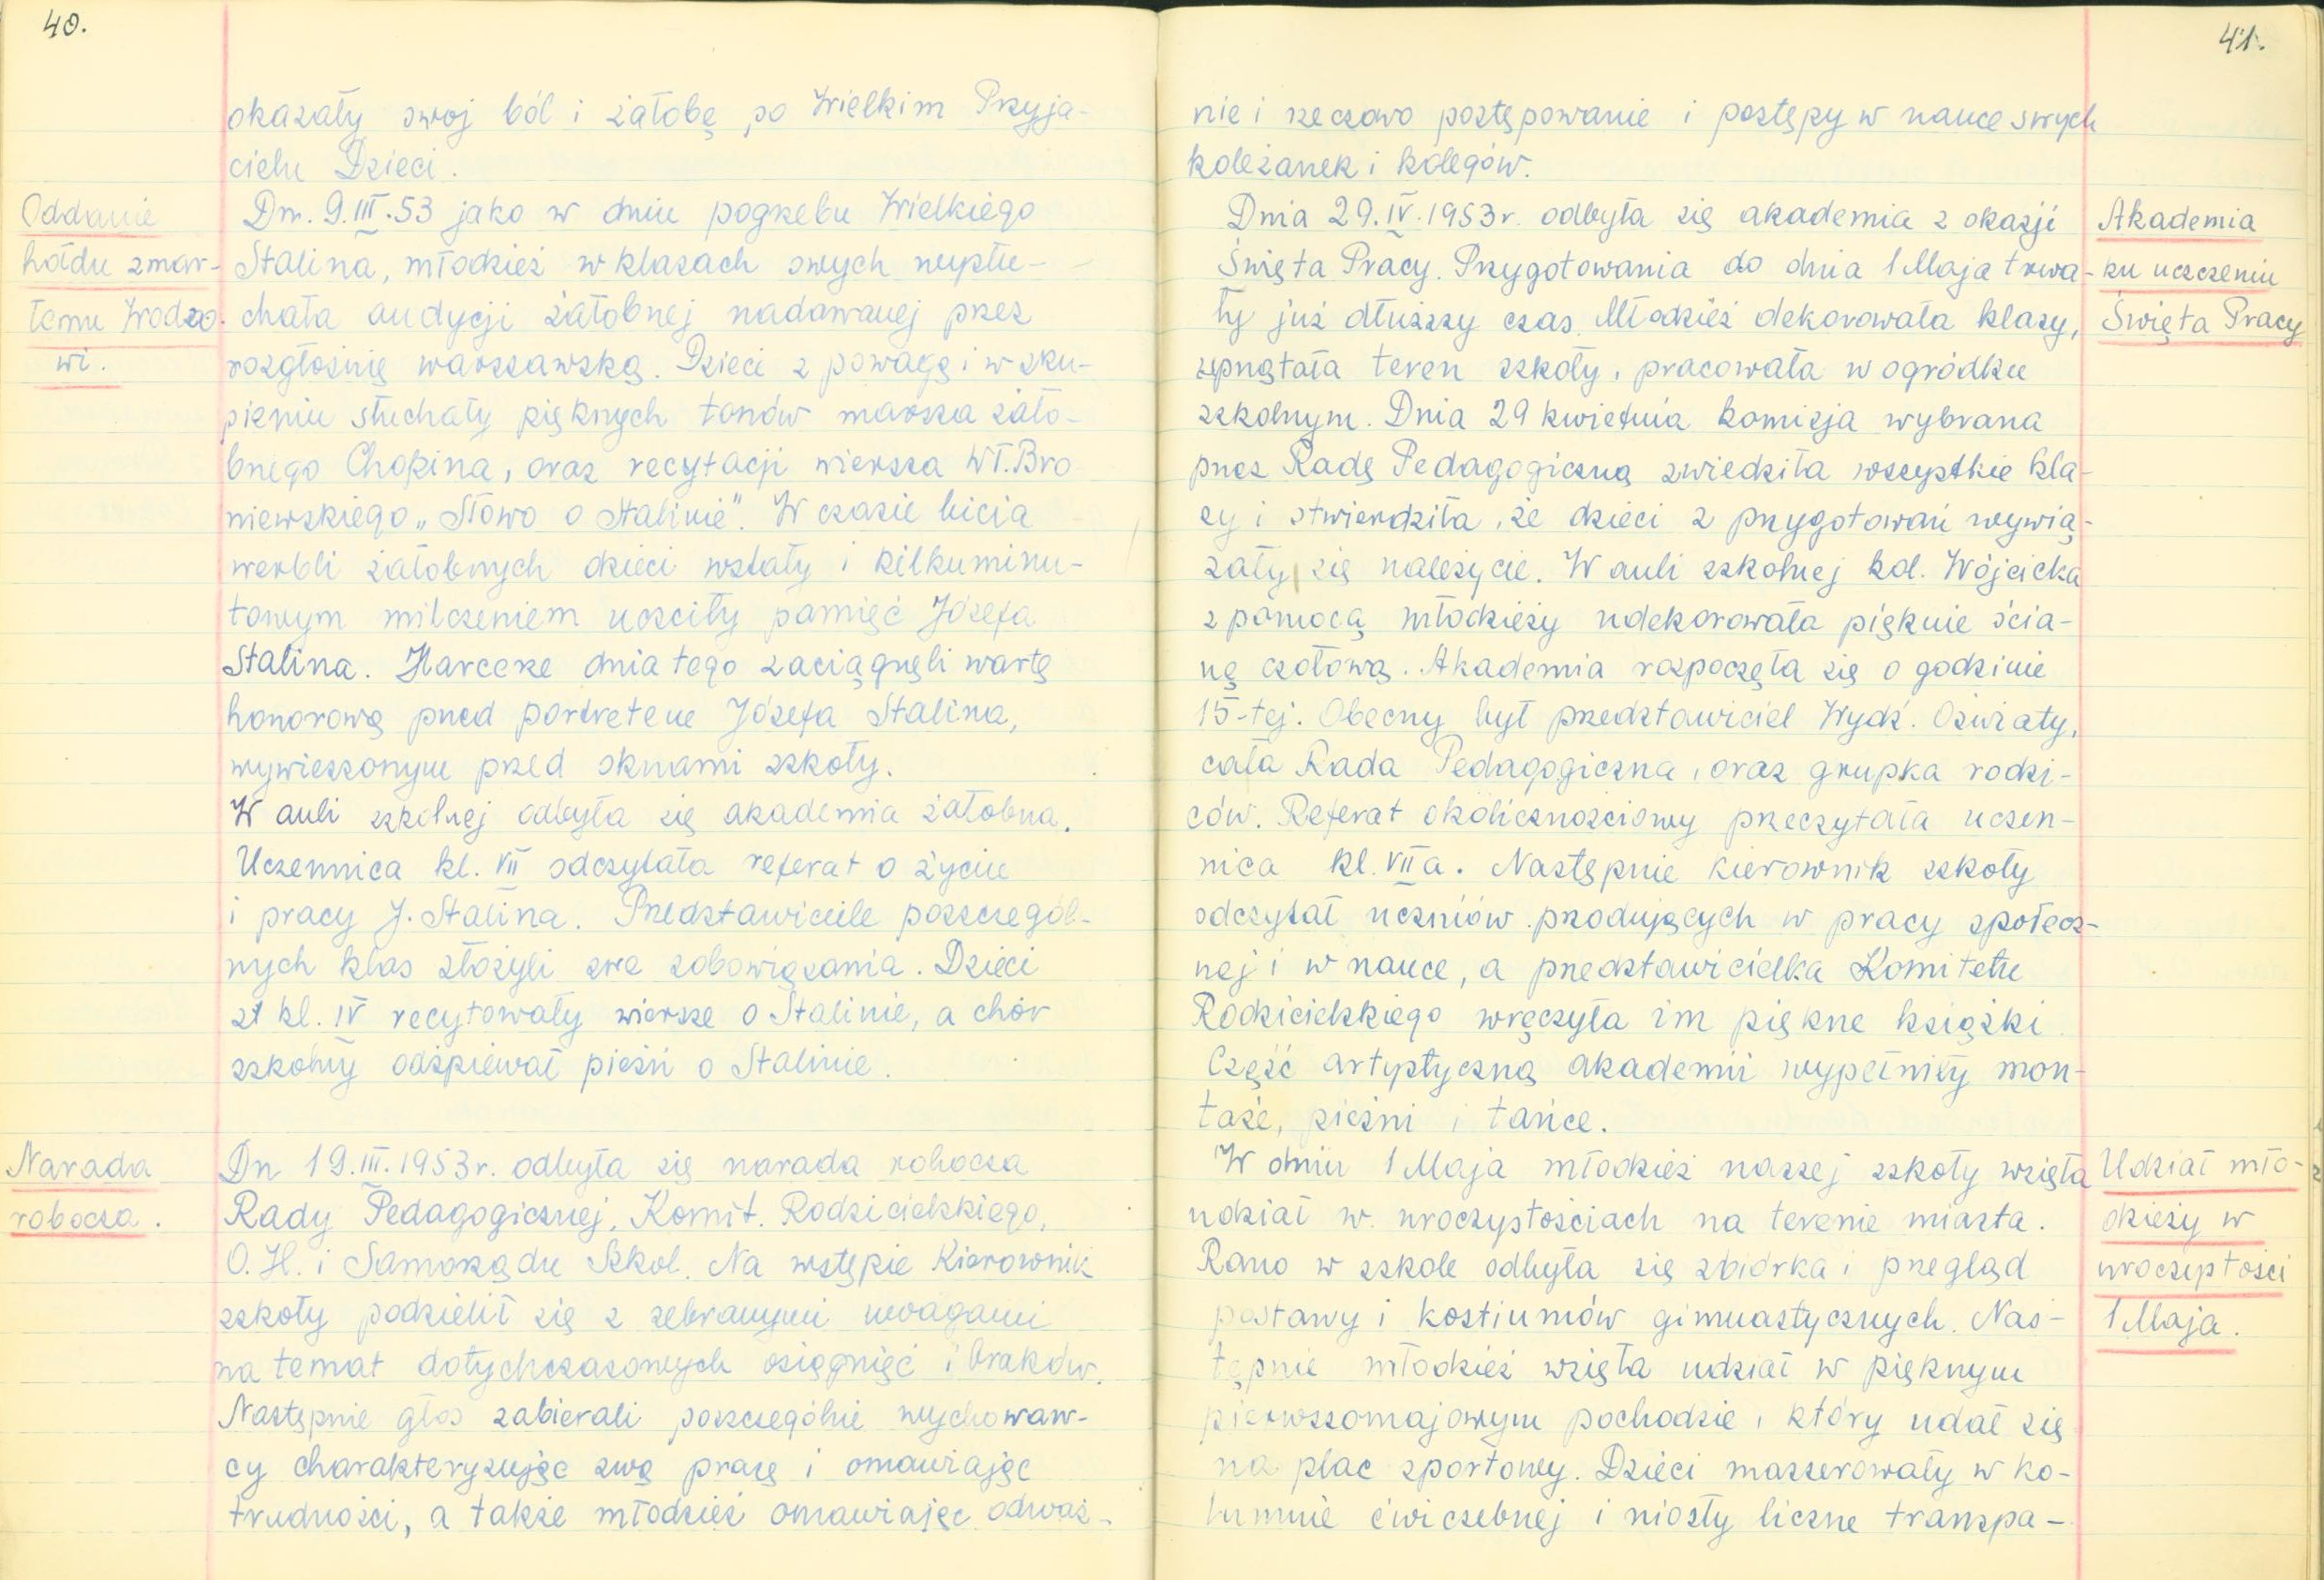 40.
okazały swoj ból i żałobę po Wielkim Przyja-
cielu Dzieci.
Oddanie
hołdu zmar-
łemu Wodzo-
wi.
Dn. 9.III.53 jako w dniu pogrzebu Wielkiego
Stalina, młodzież w klasach swych wysłu-
chała audycji żałobnej nadawanej przez
rozgłośnię warszawską. Dzieci z powagą i w sku-
pieniu słuchały pięknych tonów marsza żało-
bnego Chopina, oraz recytacji wiersza Wł. Bro
niewskiego „Słowo o Stalinie". W czasie bicia
werbli żałobnych dzieci wstały i kilkuminu-
towym milczeniem uczciły pamięć Józefa
Stalina. Harcerze dnia tego zaciągnęli wartę
honorową przed portretem Józefa Stalina,
wywieszonym przed oknami szkoły.
W auli szkolnej odbyła się akademia żałobna.
Uczennica kl. VII odczytała referat o życiu
i pracy J. Stalina. Przedstawiciele poszczegól-
nych klas złożyli swe zobowiązania. Dzieci
z kl. IV recytowały wiersze o Stalinie, a chór
szkolny odśpiewał pieśń o Stalinie.
Narada
robocza.
Dn 19.III.1953r. odbyła się narada robocza
Rady Pedagogicznej, Komit. Rodzicielskiego,
O.H. i Samorządu Szkol. Na wstępie Kierownik
szkoły podzielił się z zebranymi uwagami
na temat dotychczasowych osiągnięć i braków.
Następnie głos zabierali poszczególni wychowaw-
cy charakteryzując swą pracę i omawiając
trudności, a także młodzież omawiając odważ-
41.
nie i rzeczowo postępowanie i postępy w nauce swych
koleżanek i kolegów.
Dnia 29.IV.1953r. odbyła się akademia z okazji
Święta Pracy. Przygotowania do dnia 1 Maja trwa-
ły już dłuższy czas. Młodzież dekorowała klasy,
sprzątała teren szkoły, pracowała w ogródku
szkolnym. Dnia 29 kwietnia komisja wybrana
przez Radę Pedagogiczną zwiedziła wszystkie kla-
sy i stwierdziła, że dzieci z przygotowań wywią-
zały się należycie. W auli szkolnej kol. Wójcicka
z pomocą młodzieży udekorowała pięknie ścia-
nę czołową. Akademia rozpoczęła się o godzinie
15-tej. Obecny był przedstawiciel Wydz. Oświaty,
cała Rada Pedagogiczna, oraz grupka rodzi-
ców. Referat okolicznościowy przeczytała uczen-
nica kl. VIIa. Następnie kierownik szkoły
odczytał uczniów przodujących w pracy społecz-
nej i w nauce, a przedstawicielka Komitetu
Rodzicielskiego wręczyła im piękne książki.
Część artystyczną akademii wypełniły mon-
taże, pieśni i tańce.
Akademia
ku uczczeniu
Święta Pracy
W dniu 1 Maja młodzież naszej szkoły wzięła
udział w uroczystościach na terenie miasta.
Rano w szkole odbyła się zbiórka i przegląd
postawy i kostiumów gimnastycznych. Nas-
tępnie młodzież wzięła udział w pięknym
pierwszomajowym pochodzie, który udał się
na plac sportowy. Dzieci maszerowały w ko-
lumnie ćwiczebnej i niosły liczne transpa-
Udział mło-
dzieży w
uroczystości
1 Maja.